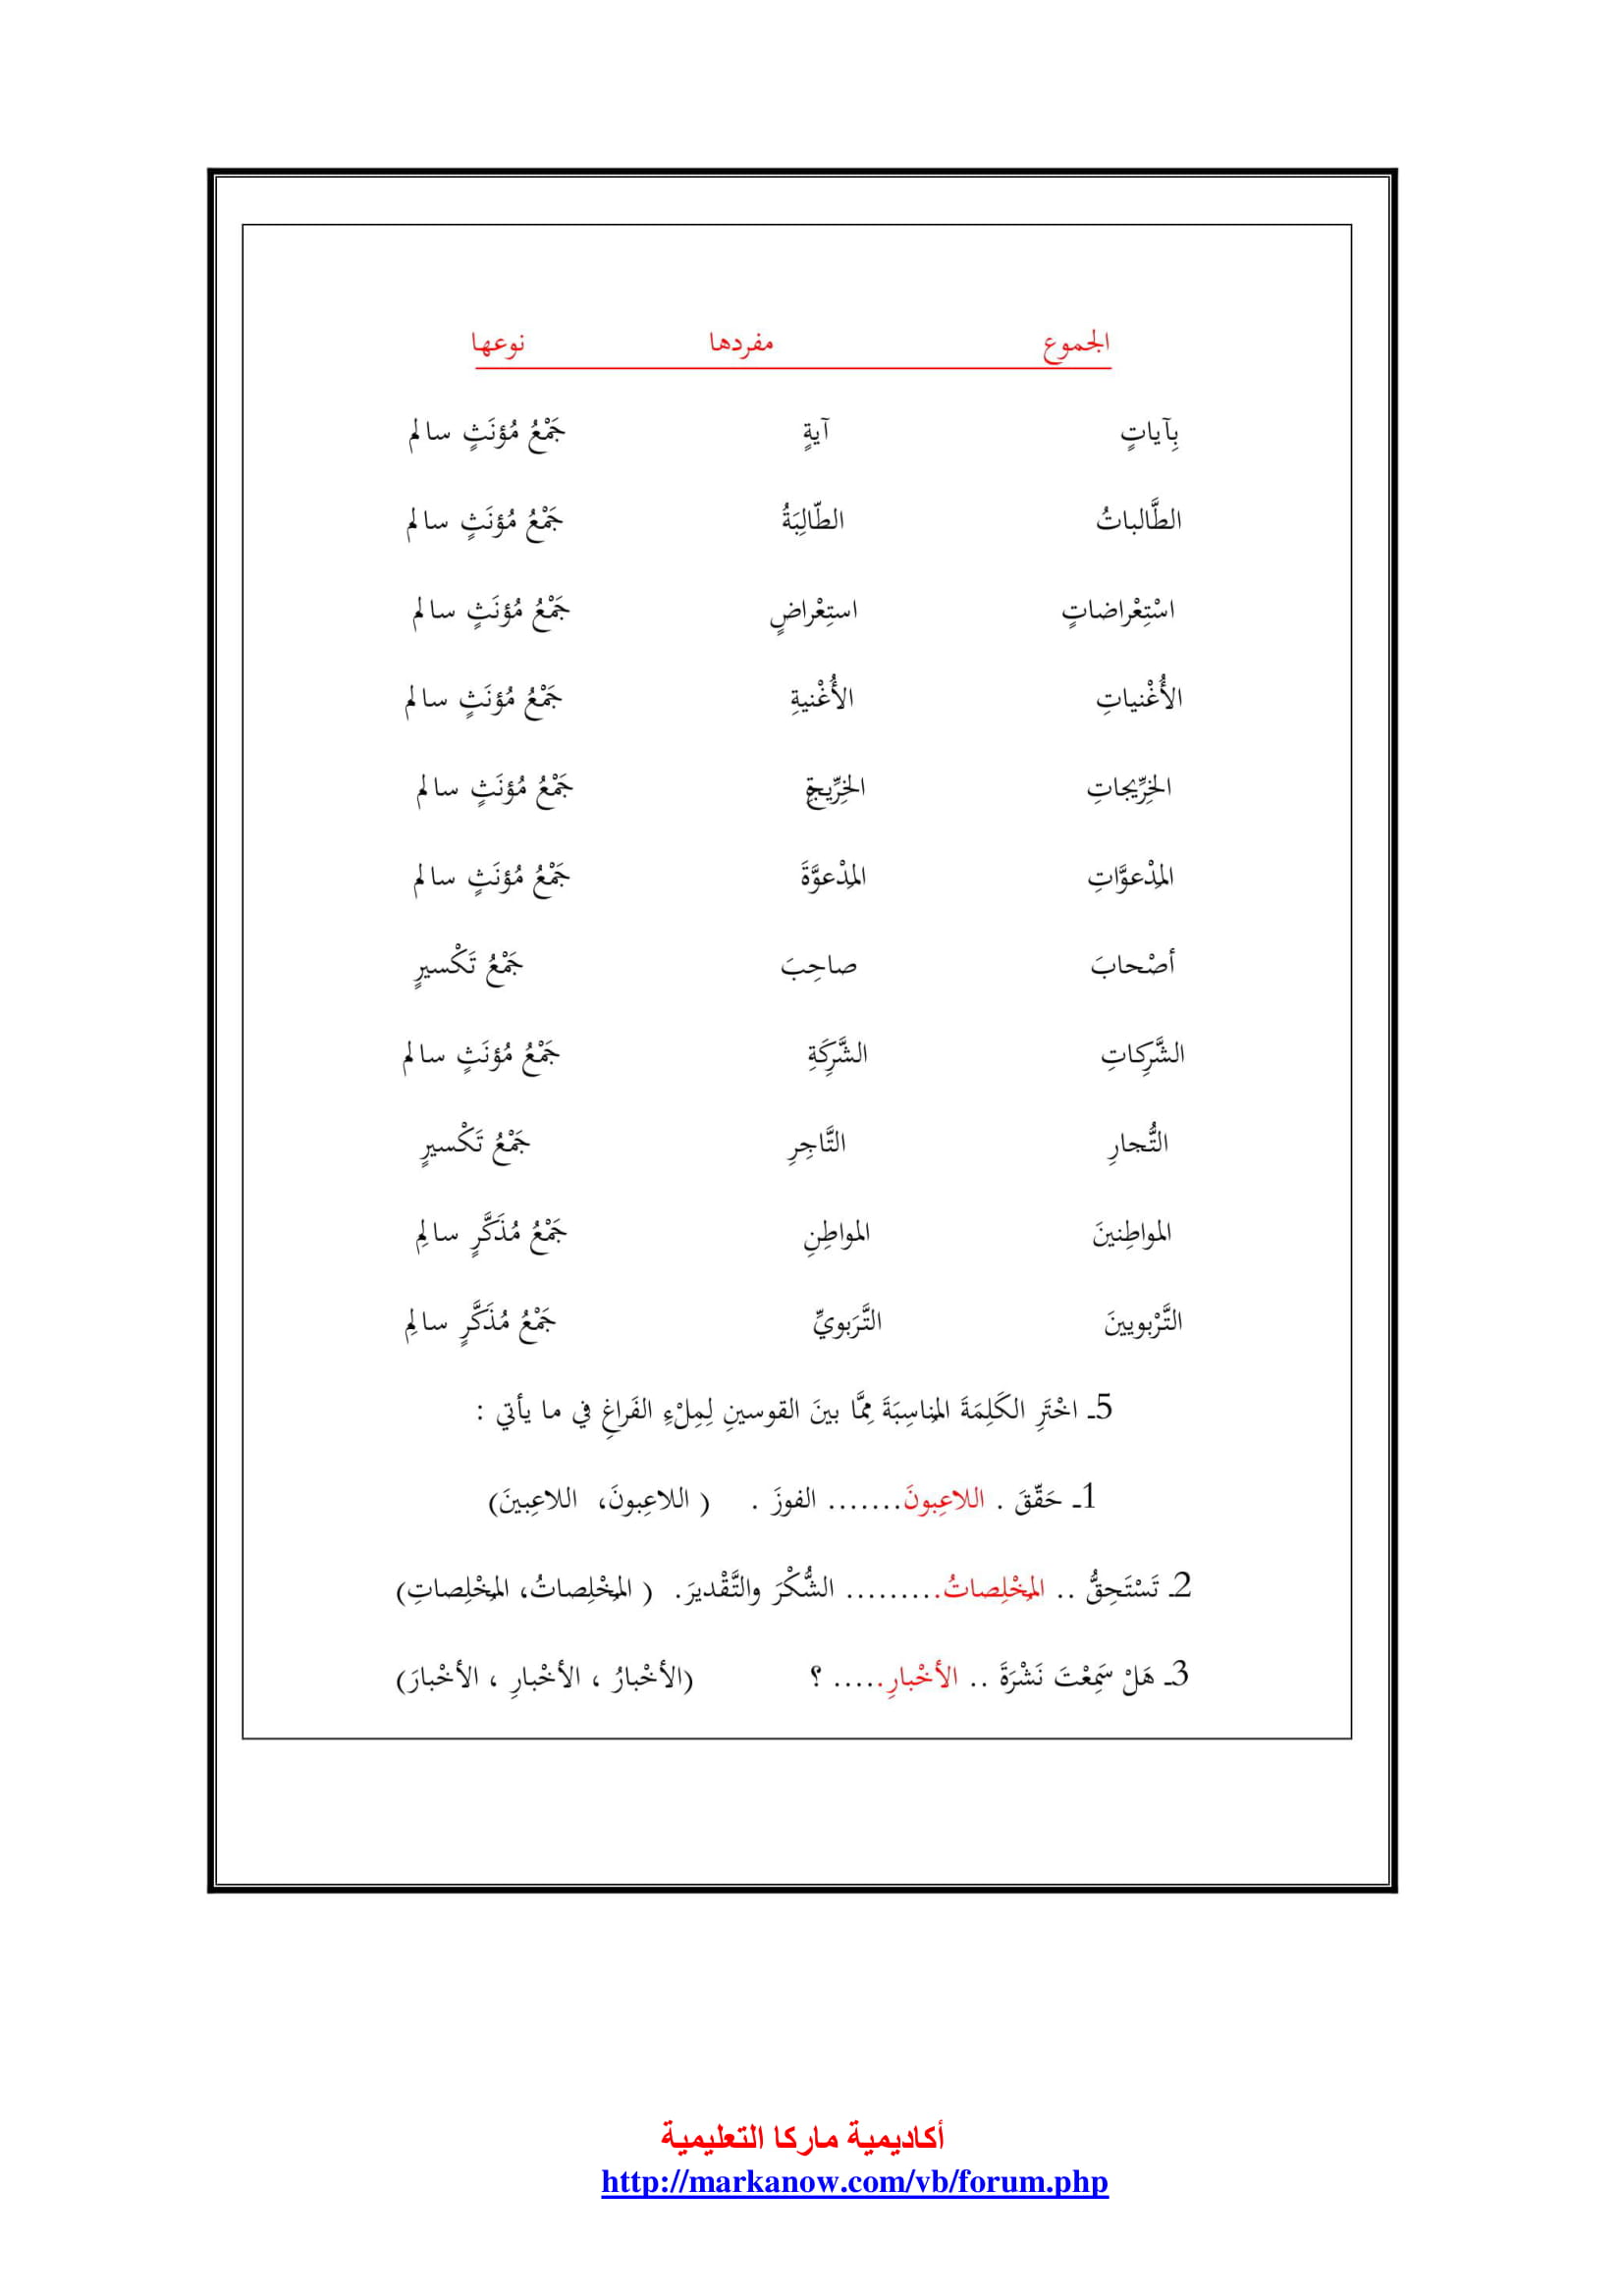 الجموع مفردها نوعها
بِآياتٍ آيةٍ جَمْعُ مُؤنَثٍ سالم
الطَّالباتُ الطّالِبَةُ جَمْعُ مُؤنَثٍ سالم
اسْتِعْراضاتٍ استِعْراضٍ جَمْعُ مُؤنَثٍ سالم
الأُغْنياتِ الأُغْنيةِ جَمْعُ مُؤنَثٍ سالم
الخِرِّيجاتِ الخِرِّيجةِ جَمْعُ مُؤنَثٍ سالم
المِدْعوَّاتِ المِدْعوَّةَ جَمْعُ مُؤنَثٍ سالم
أصْحابَ صاحِبَ جَمْعُ تَكْسيرٍ
الشَّرِكاتِ الشَّرِكَةِ جَمْعُ مُؤنَثٍ سالم
التُّجارِ التَّاجِرِ جَمْعُ تَكْسيرٍ
المواطِنينَ المواطِنِ جَمْعُ مُذَكَّرٍ سالِم
التَّرْبويينَ التَّرَبويِّ جَمْعُ مُذَكَّرٍ سالِم
5ـ اخْتَرِ الكَلِمَةَ المِناسِبَةَ مِمَّا بينَ القوسينِ لِمِلْءِ الفَراغِ في ما يأتي :
1ـ حَقّقَ . اللاعِبونَ....... الفوزَ . ( اللاعِبونَ، اللاعِبينَ)
2ـ تَسْتَحِقُّ .. المِخْلِصاتُ......... الشُّكْرَ والتَّقْديرَ. ( المِخْلِصاتُ، المِخْلِصاتِ)
3ـ هَلْ سَمِعْتَ نَشْرَةَ .. الأخْبارِ..... ؟ (الأخْبارُ ، الأخْبارِ ، الأخْبارَ)
أكاديمية ماركا التعليمية
http://markanow.com/vb/forum.php